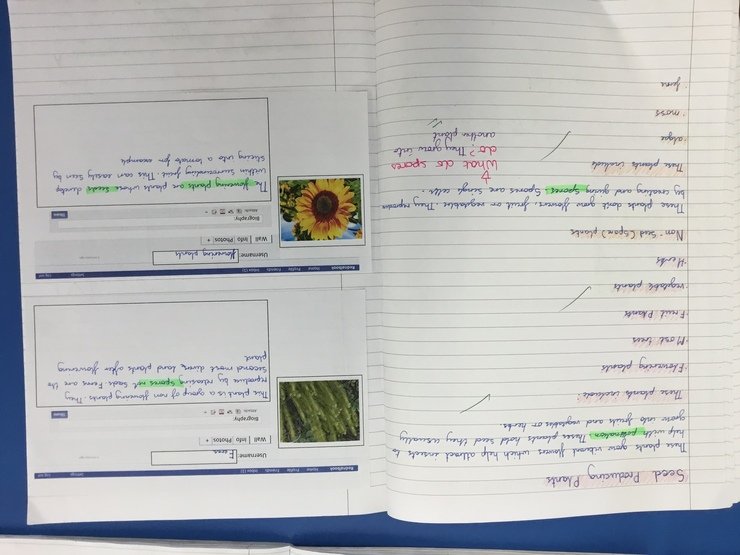 Seed Producing Plants
These plants grow vibrant flowers which help attract insects to
help with pollination. These plants hold seed they usually
grow into fruits and vegetables or herbs.
These plants include:
·Flowering plants
·Most trees
·Fruit Plants
·vegetable plants
·Herbs
Non-Seed (Spore) plants
These plants don't grow flowers, fruit or vegetables. They reproduce
by creating and giving spores. Spores are single cells.
What do spores
do? They grow into
another plant
These plants included
·algae
·moss
·ferns
Redroitbook Home Profile Friends Inbox (2) Settings Log out
Username: Ferns
Wall Info Photos +
Biography
Attach: Share
This plant is a group of non flowering plants. They
reproduce by releasing spores not seeds. Ferns are the
second most divers land plants after flowering
plant
Redroitbook Home Profile Friends Inbox (2) Settings Log out
Username: flowering plants
Wall Info Photos +
Biography
Attach: Share
The flowering plants are plants whose seeds develop
within surrounding fruit. This can easely seen by
slicing into a tomato for example